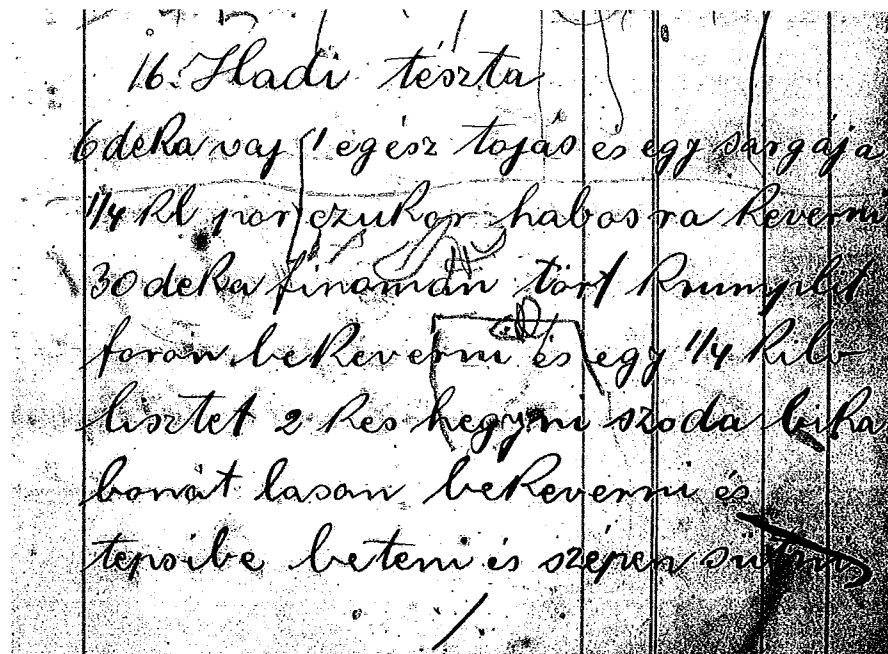 16. Hadi tészta
6 deka vaj 1 egész tojás és egy sárgája
1/4 kl porczukor habosra keverni
30 deka finoman tört krumplit
foron bekeverni és egy 1/4 kiló
lisztet 2 kés hegyni szoda bika
bonát lasan bekeverni és
tepsibe beteni és szépen sütni